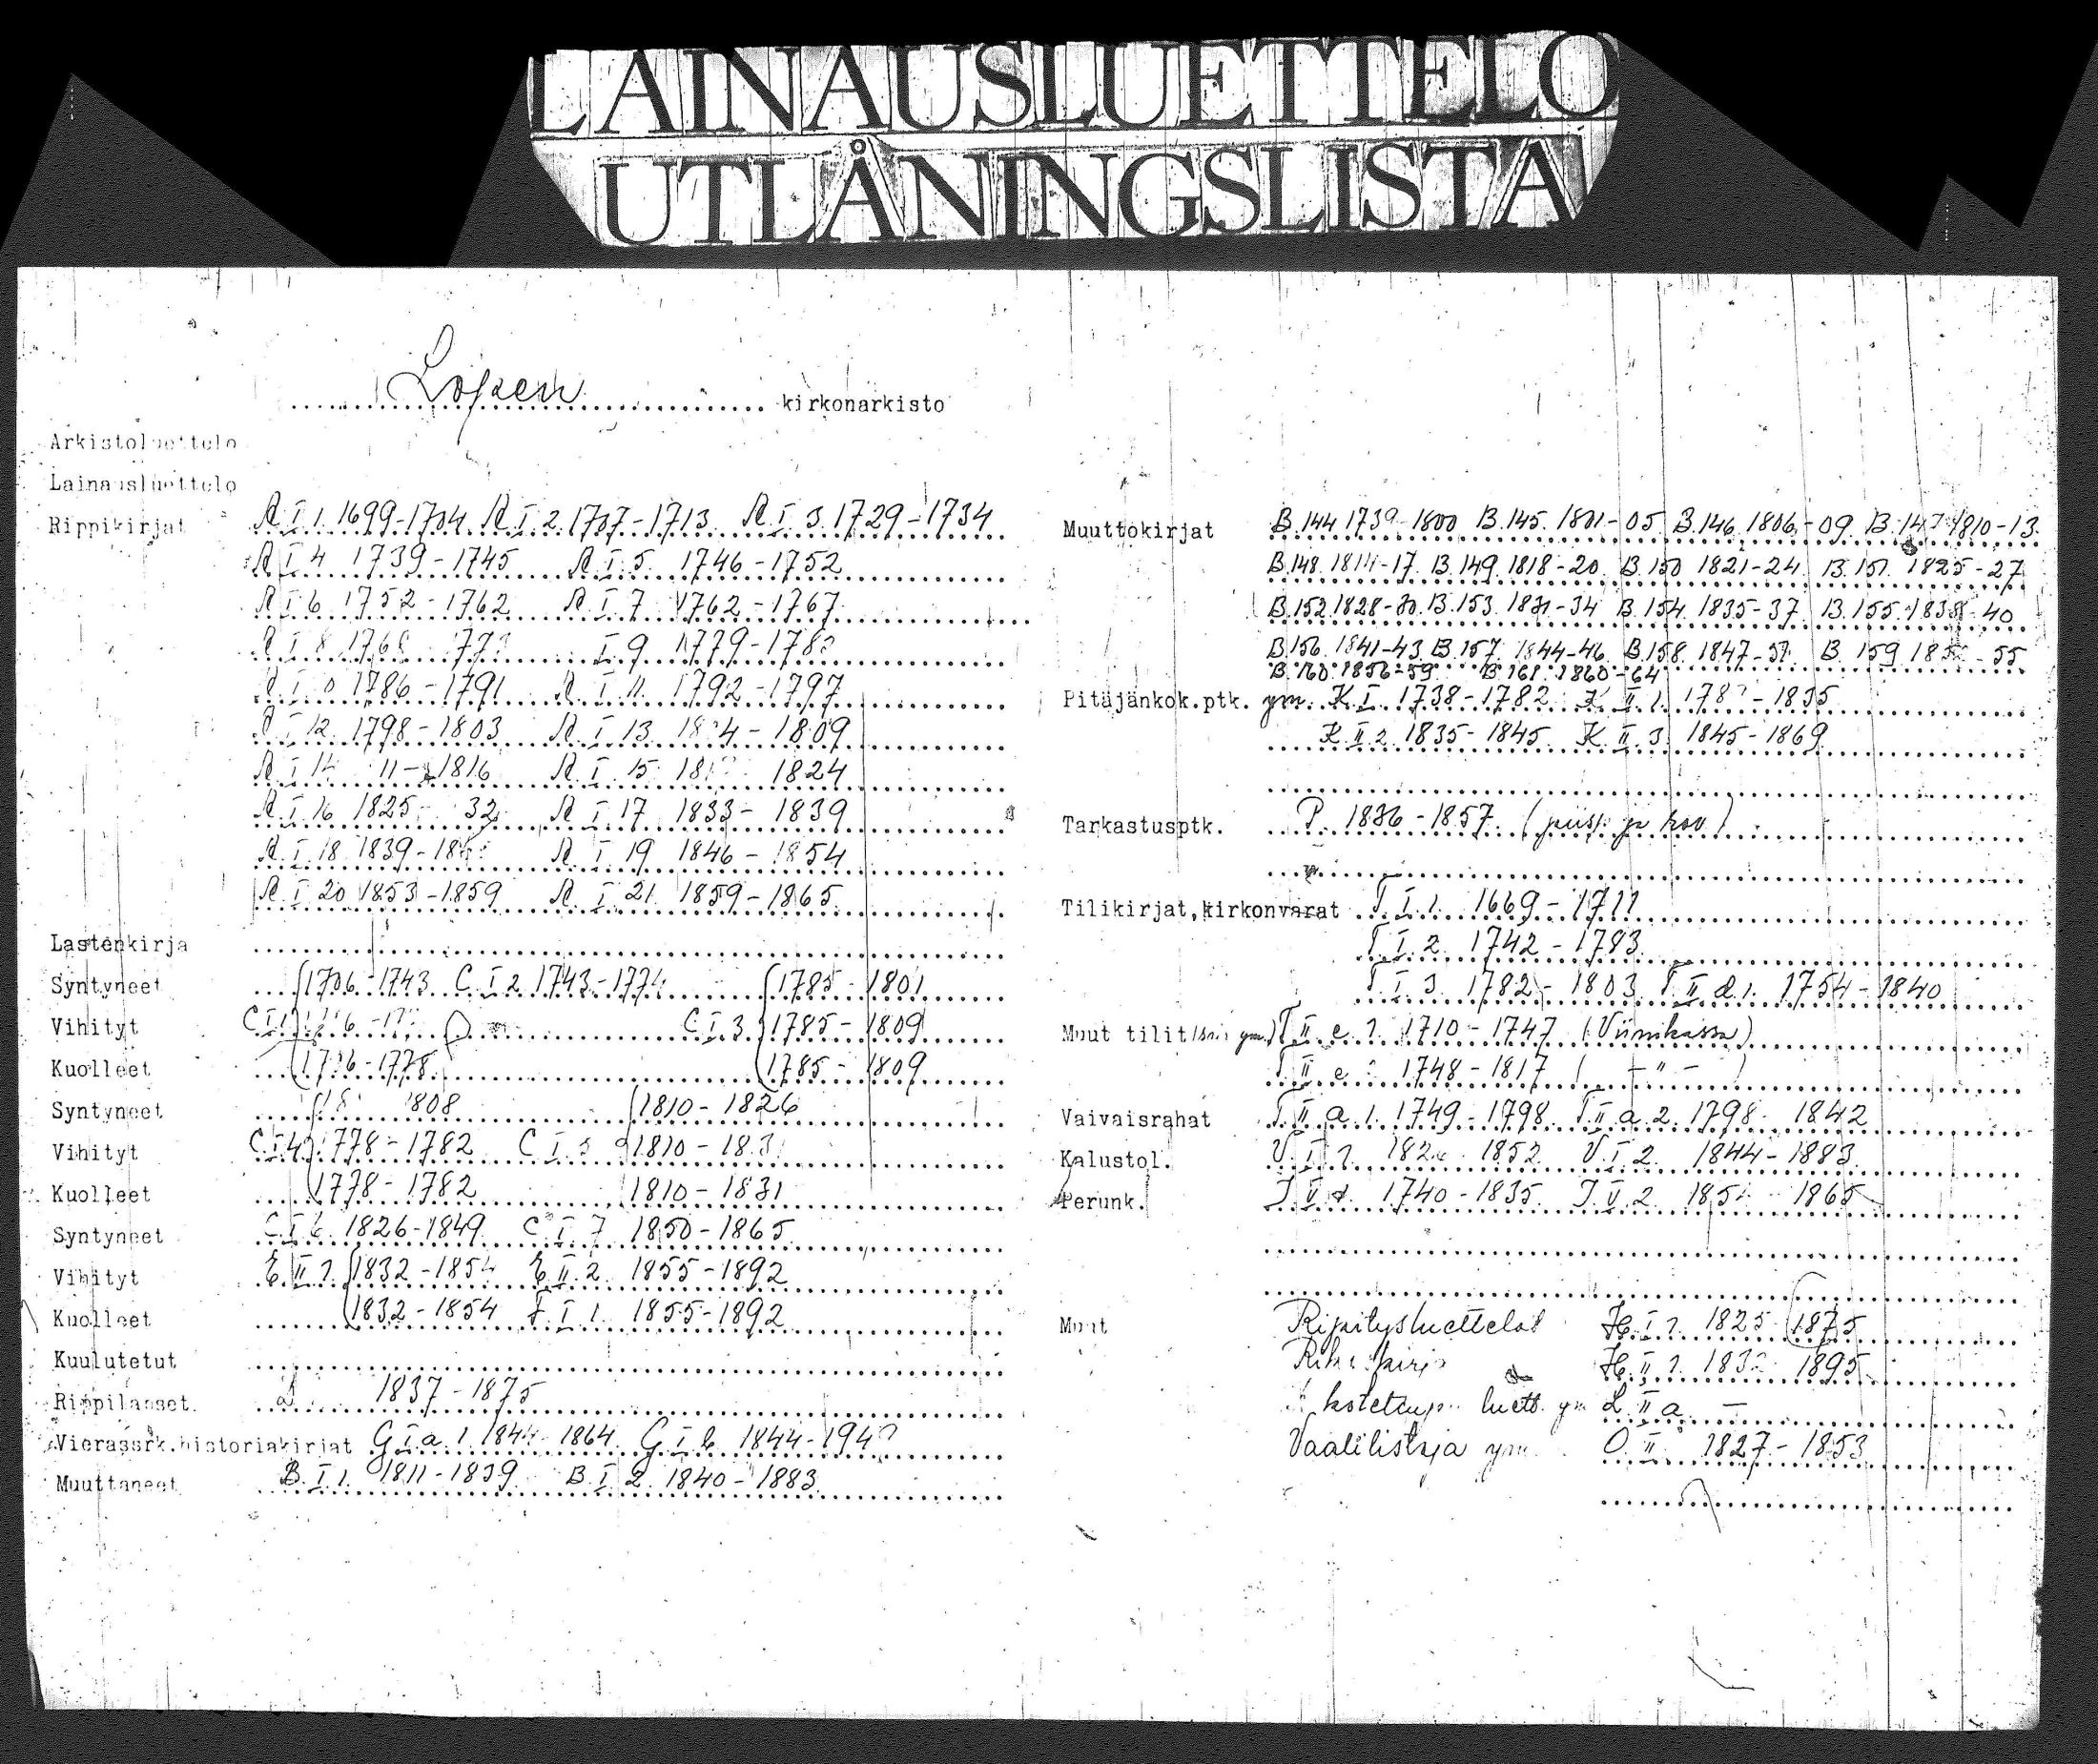 LAINAUSLUETTELO
UTLÅNINGSLISTA
Lopen kirkonarkisto
Arkistoluettelo
Lainausluettelo
Rippikirjat A I 1 1699-1704 A I 2 1707-1713 A I 3 1729-1734
A I 4 1739-1745 A I 5 1746-1752
A I 6 1752-1762 A I 7 1762-1767
A I 8 I 9
1786-1791 A I 11 1792-1797
A I 12 1798-1803 A I 13 - 1809
A I 14 - 1816 A I 15 1824
A I 16 1825- 32 A I 17 1833-1839
A I 18 1839- A I 19 1846-1854
A I 20 1853-1859 A I 21 1859-1865
Lastenkirja
Syntyneet 1706-1743 C I 2 1743-1774 1785-1801
Vihityt C I 1 C I 3 1785-1809
Kuolleet 1785-1809
Syntyneet 1808 1810-1826
Vihityt C I 4 1778-1782 C I 1810-
Kuolleet 1778-1782 1810-1831
Syntyneet C I 6 1826-1849 C I 7 1850-1865
Vihityt E II 1 1832-1854 E II 2 1855-1892
Kuolleet 1832-1854 F I 1 1855-1892
Kuulutetut
Rippilapset 1837-1875
Vierassrk.historiakirjat G I a 1 1844-1864 G I b 1844-
Muuttaneet B I 1 1811-1839 B I 2 1840-1883
Muuttokirjat B.144 1739-1800 B.145 1801-05 B.146 1806-09 B.147 1810-13
B.148 1814-17 B.149 1818-20 B.150 1821-24 B.151 1825-27
B.152 1828-30 B.153 1831-34 B.154 1835-37 B.155 1838-40
B.156 1841-43 B.157 1844-46 B.158 1847-51 B.159 - 55
B.160 1856-59 B.161 1860-64
Pitäjänkok.ptk. ym. K I 1738-1782 K II 1 - 1835
K II 2 1835-1845 K II 3 1845-1869
Tarkastusptk. P. 1836-1857 (piisp ja rov)
Tilikirjat, kirkonvarat T I 1 1669-1711
T I 2 1742-1783
T I 3 1782-1803 T II d 1 1754-1840
Muut tilit T II e 1 1710-1747 (Viinikassa)
T II e 1748-1817 ( - " - )
Vaivaisrahat T II a 1 1749-1798 T II a 2 1798-1842
Kalustol. 1852 2 1844-1883
Perunk. 1740-1835 2 1865
Muut Ripitysluettelot H I 1 1825 1875
Rikoskirja H II 1 1895
luett. ym L II a -
Vaalilistoja ym. O II 1827-1853